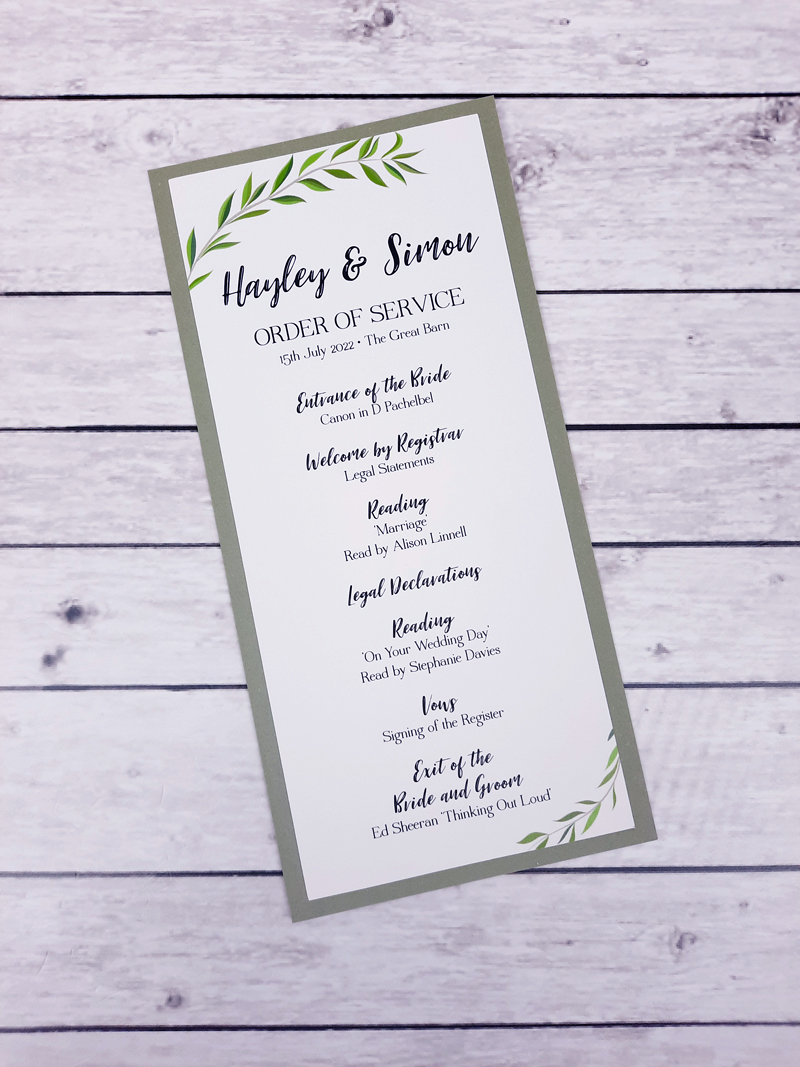 Hayley & Simon
ORDER OF SERVICE
15th July 2022 • The Great Barn
Entrance of the Bride
Canon in D Pachelbel
Welcome by Registrar
Legal Statements
Reading
'Marriage'
Read by Alison Linnell
Legal Declarations
Reading
'On Your Wedding Day'
Read by Stephanie Davies
Vows
Signing of the Register
Exit of the
Bride and Groom
Ed Sheeran 'Thinking Out Loud'